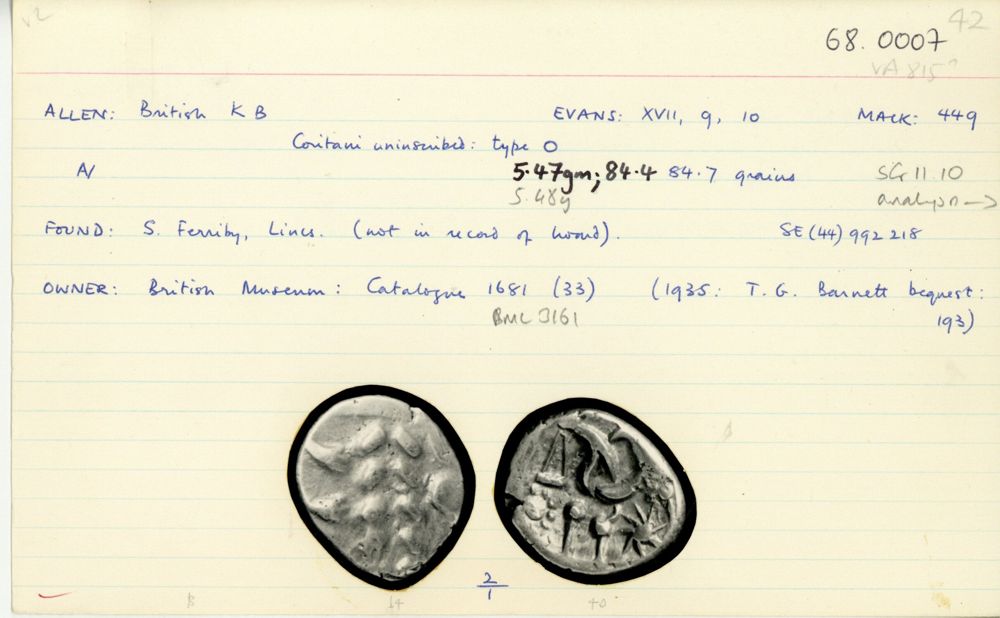 v2
42
68.0007
VA 815?
ALLEN: British K B EVANS: XVII, 9, 10 MACK: 449
Coritani uninscribed: type O
A/ 5.47gm; 84.4 84.7 grains SG 11.10
5.48g analysis →
FOUND: S. Ferriby, Lincs. (not in record of hoard). SE (44) 992 218
OWNER: British Museum: Catalogue 1681 (33) (1935: T. G. Barnett bequest:
193)
BMC 3161
2/1
14 40